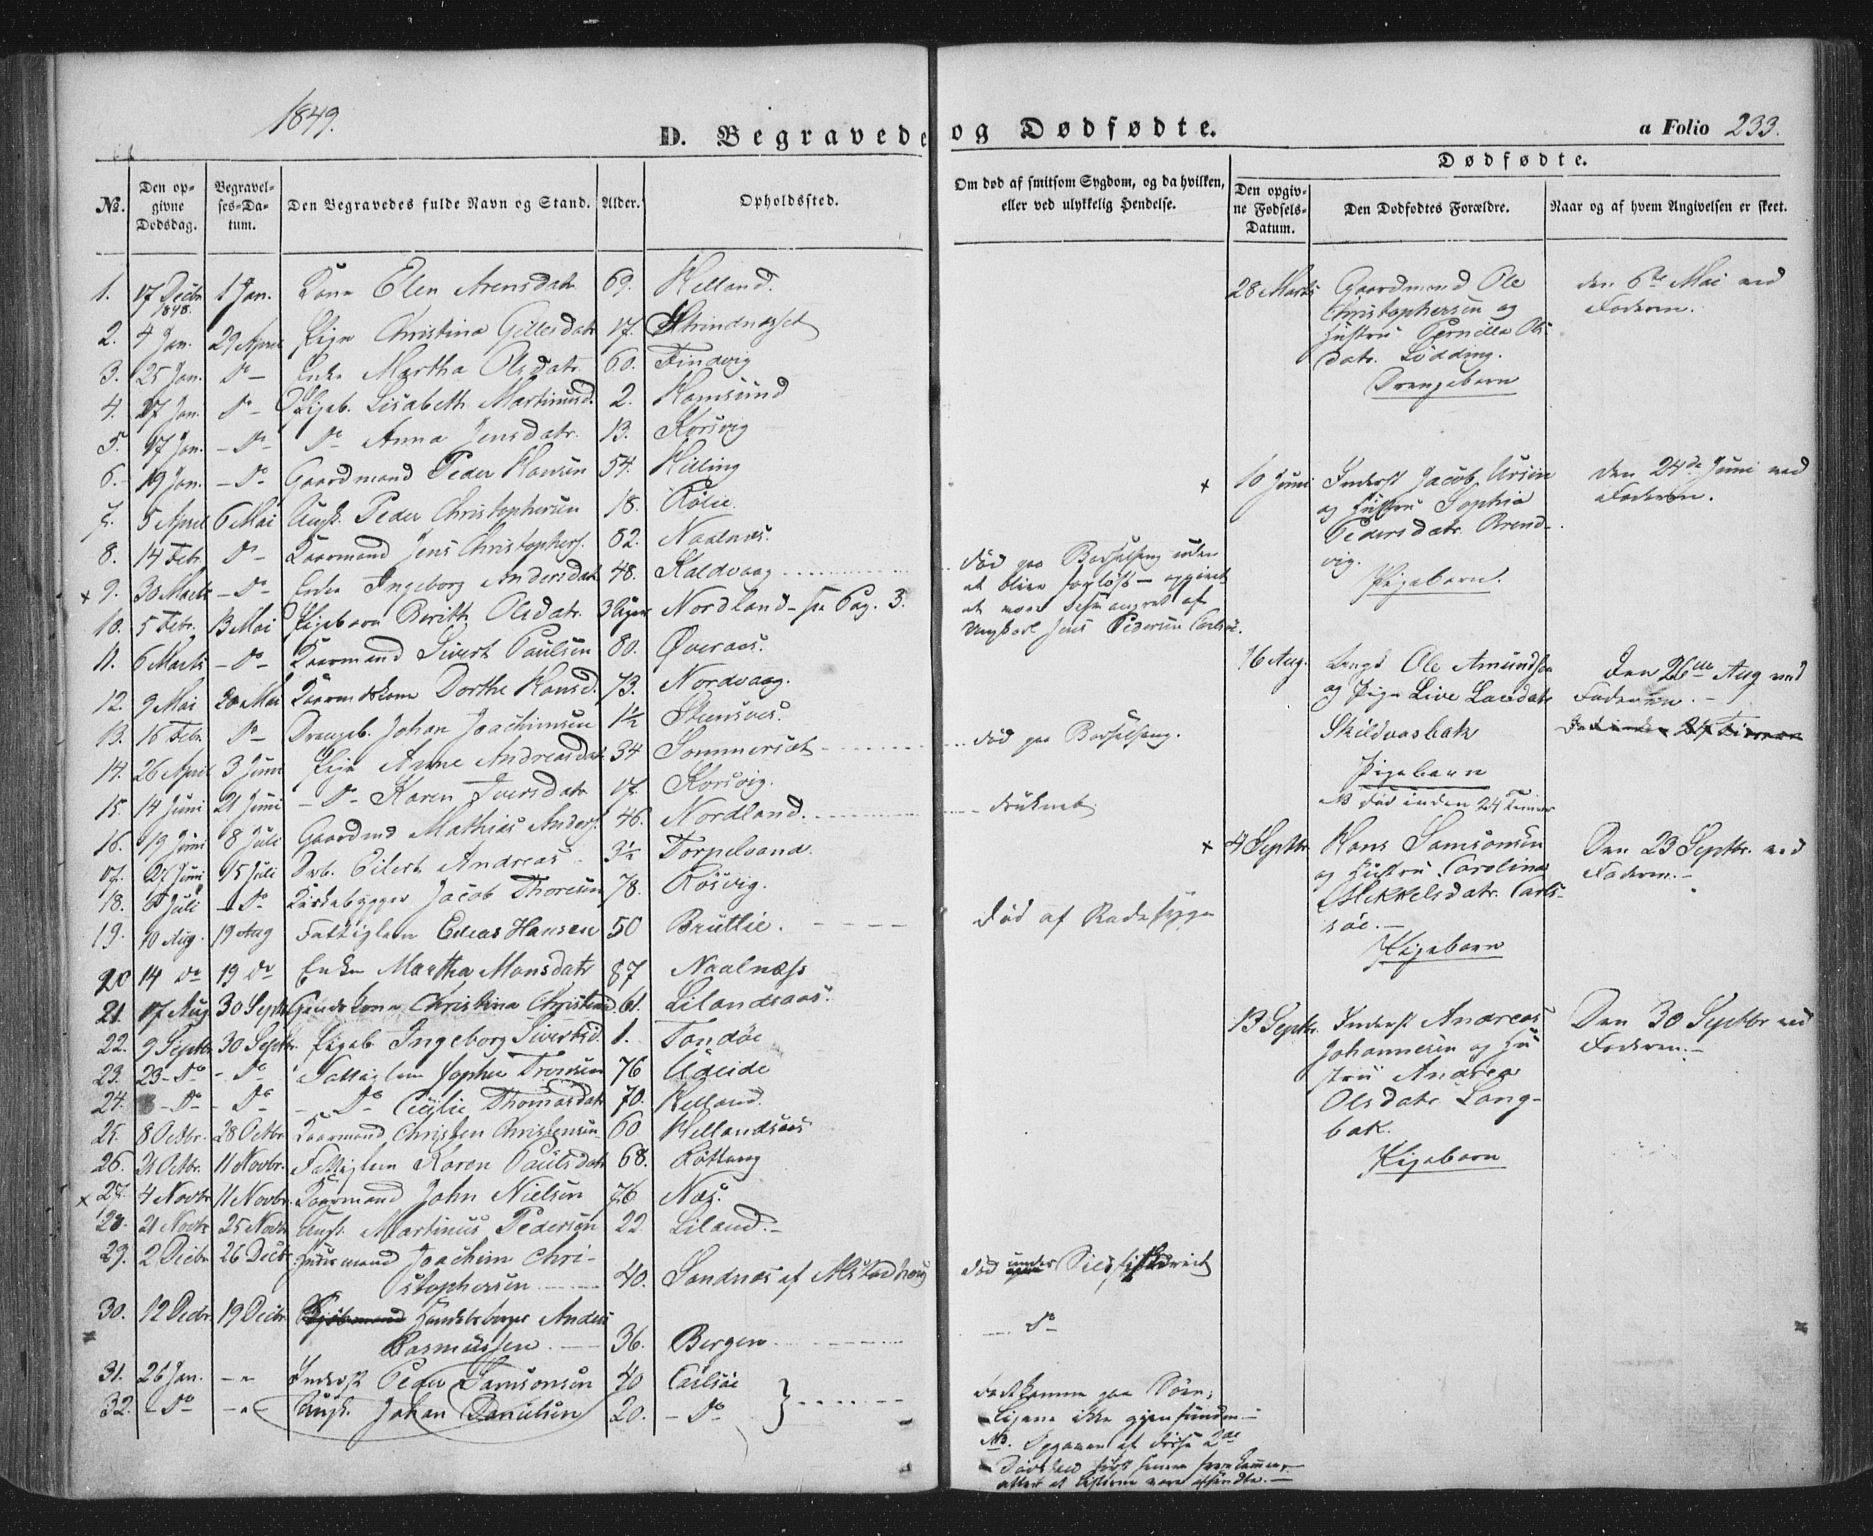 1849.
D. Begravede og Dødfødte.
a Folio 233.
No. Den opgivne Dødsdag. Begravelses-Datum. Den Begravedes fulde Navn og Stand. Alder. Opholdssted.
Om død af smitsom Sygdom, og da hvilken, eller ved ulykkelig Hendelse.
Dødfødte.
Den opgivne Fødsels-Datum. Den Dødfødtes Forældre. Naar og af hvem Angivelsen er skeet.
1. 17 Decbr 1848. 1 Jan. Kone Elen Arensdatr 69. Helland.
2. 4 Jan. 29 April Pige Christina 17. Strindnæsset
3. 25 Jan. Do Enke Martha Olsdatr. 60. Findvig
4. 27 Jan. Do Pigeb. Lisabeth Martinusd. 2. Hamsund
5. 17 Jan. Do Do Anna Jensdatr. 13. Korsvig
6. 19 Jan. Do Gaardmand Peder Hansen 54. Helling
7. 5 April 6 Mai Ungk. Peder Christophersen 18. Rølie.
8. 14 Febr. Do Kaarmand Jens Christophers. 62. Naalnæs.
x 9. 30 Marts Do Enke Ingeborg Andersdatr 48. Kaldvaag
10. 5 Febr. 13 Mai Pigebarn Berith Olsdatr. 3 Uger Nordland - see Pag. 3.
11. 6 Marts Do Kaarmand Sivert Paulsen 80. Øveraas.
12. 9 Mai 20 Mai Kaarmdskone Dorthe Hansd. 73. Nordvaag.
13. 16 Febr. Do Drengeb. Johan Joachimsen 1½
14. 26 April 3 Juni Pige Anne Andreasdatr 34 Sommerset
15. 14 Juni 21 Juni Do Karen Iversdatr 17. Korsvig.
16. 19 Juni 8 Juli Gaardmd Mathias Anders. 46. Nordland.
17. 21 Juni 15 Juli Drb. Eilert Andreas 3½ Torpelvand.
18. 6 Juli Do Kirkebygger Jacob Thoresen 78. Røsvig.
19. 10 Aug. 19 Aug Fattiglem Hansen 50
20 14 do 19 do Enke Martha Monsdatr 87 Naalnæss
21. 17 Aug 30 Septbr Christina Christiand. 61. Lilandsaas.
22. 9 Septbr 30 Septbr. Pigeb. Ingeborg Sivertsd. 1. Tandøe
23. 23 Do Do Fattiglem Tronsen 76
24. Do Do Do Cecilie Thomasdatr 70. Helland.
25. 8 Octbr. 28 Octbr. Kaarmand Christen Christensen 60 Hellandsaas
26. 21 Octbr. 11 Novbr. Fattiglem Karen Paulsdatr 68. Røttang
x 27. 4 Novbr 11 Novbr. Kaarmand John Nielsen 76 Næs.
28. 21 Novbr 25 Novbr Ungk. Martinus Pedersen 22. Liland.
29. 2 Decbr 26 Decbr Huusmand Joachim Christophersen 40. Sandnæs af Alstadhoug
30. 12 Decbr. 19 Decbr. Handelsborger Anders Rasmussen 36. Bergen
31. 26 Jan. Inderst Peder Samsonsen 40 Carlsøe
32. Do Ungk. Johan Danielsen 20. Do
død paa Barselseng uden
at blive forløst - opgivet
at være besvangret af
Ungkarl Jens Pedersen Carlsøe.
død paa Barselseng.
druknet.
død af Radesyge
død under Sildfiskeriet
Do
Omkomne paa Søen;
Ligene ikke gjenfundne.
NB. Opgaven af disse 2de
Dødsfald først senere fremkommen,
efter at Listerne vare afsendte.
28 Marts Gaardmand Ole
Christophersen og
Hustru Pernilla Olsdatr. Løding.
Drengebarn
den 6te Mai ved
Faderen.
x 10 Juni Inderst Jacob Ursin
og Hustru Sophia
Pedersdatr. Brendvig.
Pigebarn.
den 24de Juni ved
Faderen.
16 Aug. Ungk Ole Amundsen
og Pige Live Larsdatr
Skildvasbak
Pigebarn
NB død inden 24 Timer
Den 26de Aug ved
Faderen.
x 4 Septbr. Hans Samsonsen
og Hustru Carolina
Mekkelsdatr. Carlsøe.
Pigebarn
Den 23 Septbr. ved
Faderen.
13 Septbr. Inderst Andreas
Johannesen og Hustru Andrea
Olsdatr. Langbak.
Pigebarn
Den 30 Septbr ved
Faderen.